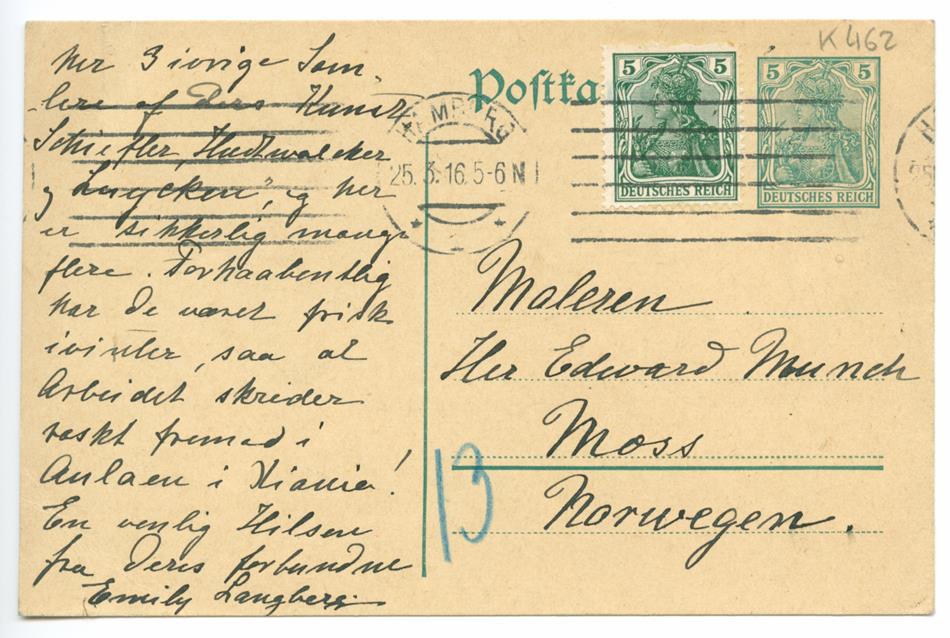 K 462
her 3 ivrige Sam-
lere af Deres Kunst,
Schiefler, Hudtwalcker
og Luycken", og her
er sikkerlig mange
flere. Forhaabentlig
har De været frisk
ivinter, saa at
Arbeidet skrider
raskt fremad i
Aulaen i Kiania!
En venlig Hilsen
fra Deres forbundne
Emily Langberg.
Postka
5 5
DEUTSCHES REICH
5 5
DEUTSCHES REICH
HAMBURG
25.3.16.5-6 N
Maleren
Her Edward Munch
Moss
Norwegen.
13